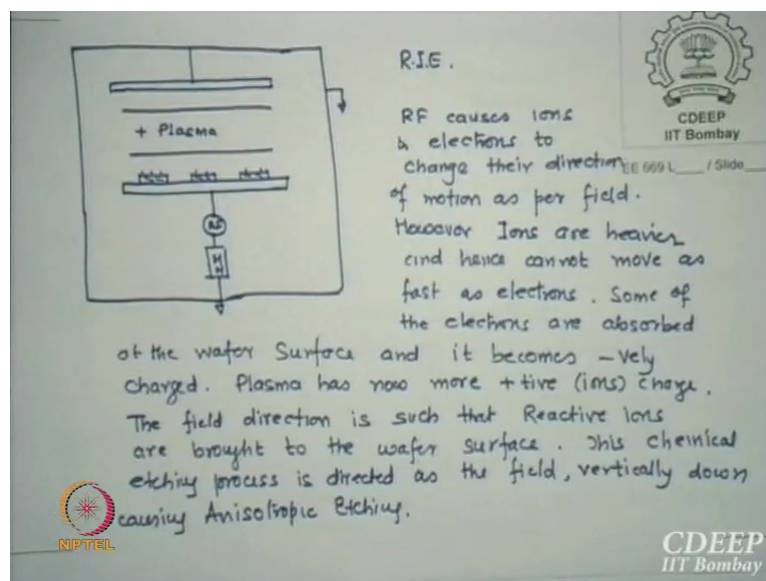 R.I.E.
CDEEP
IIT Bombay
EE 669 L___ / Slide___
+ Plasma
RF
M
N
RF causes ions
& elections to
change their direction
of motion as per field.
However Ions are heavier
and hence cannot move as
fast as electrons. Some of
the electrons are absorbed
at the wafer Surface and it becomes -vely
charged. Plasma has now more +tive (ions) charge.
The field direction is such that Reactive ions
are brought to the wafer surface. This chemical
etching process is directed as the field, vertically down
causing Anisotropic Etching.
NPTEL
CDEEP
IIT Bombay